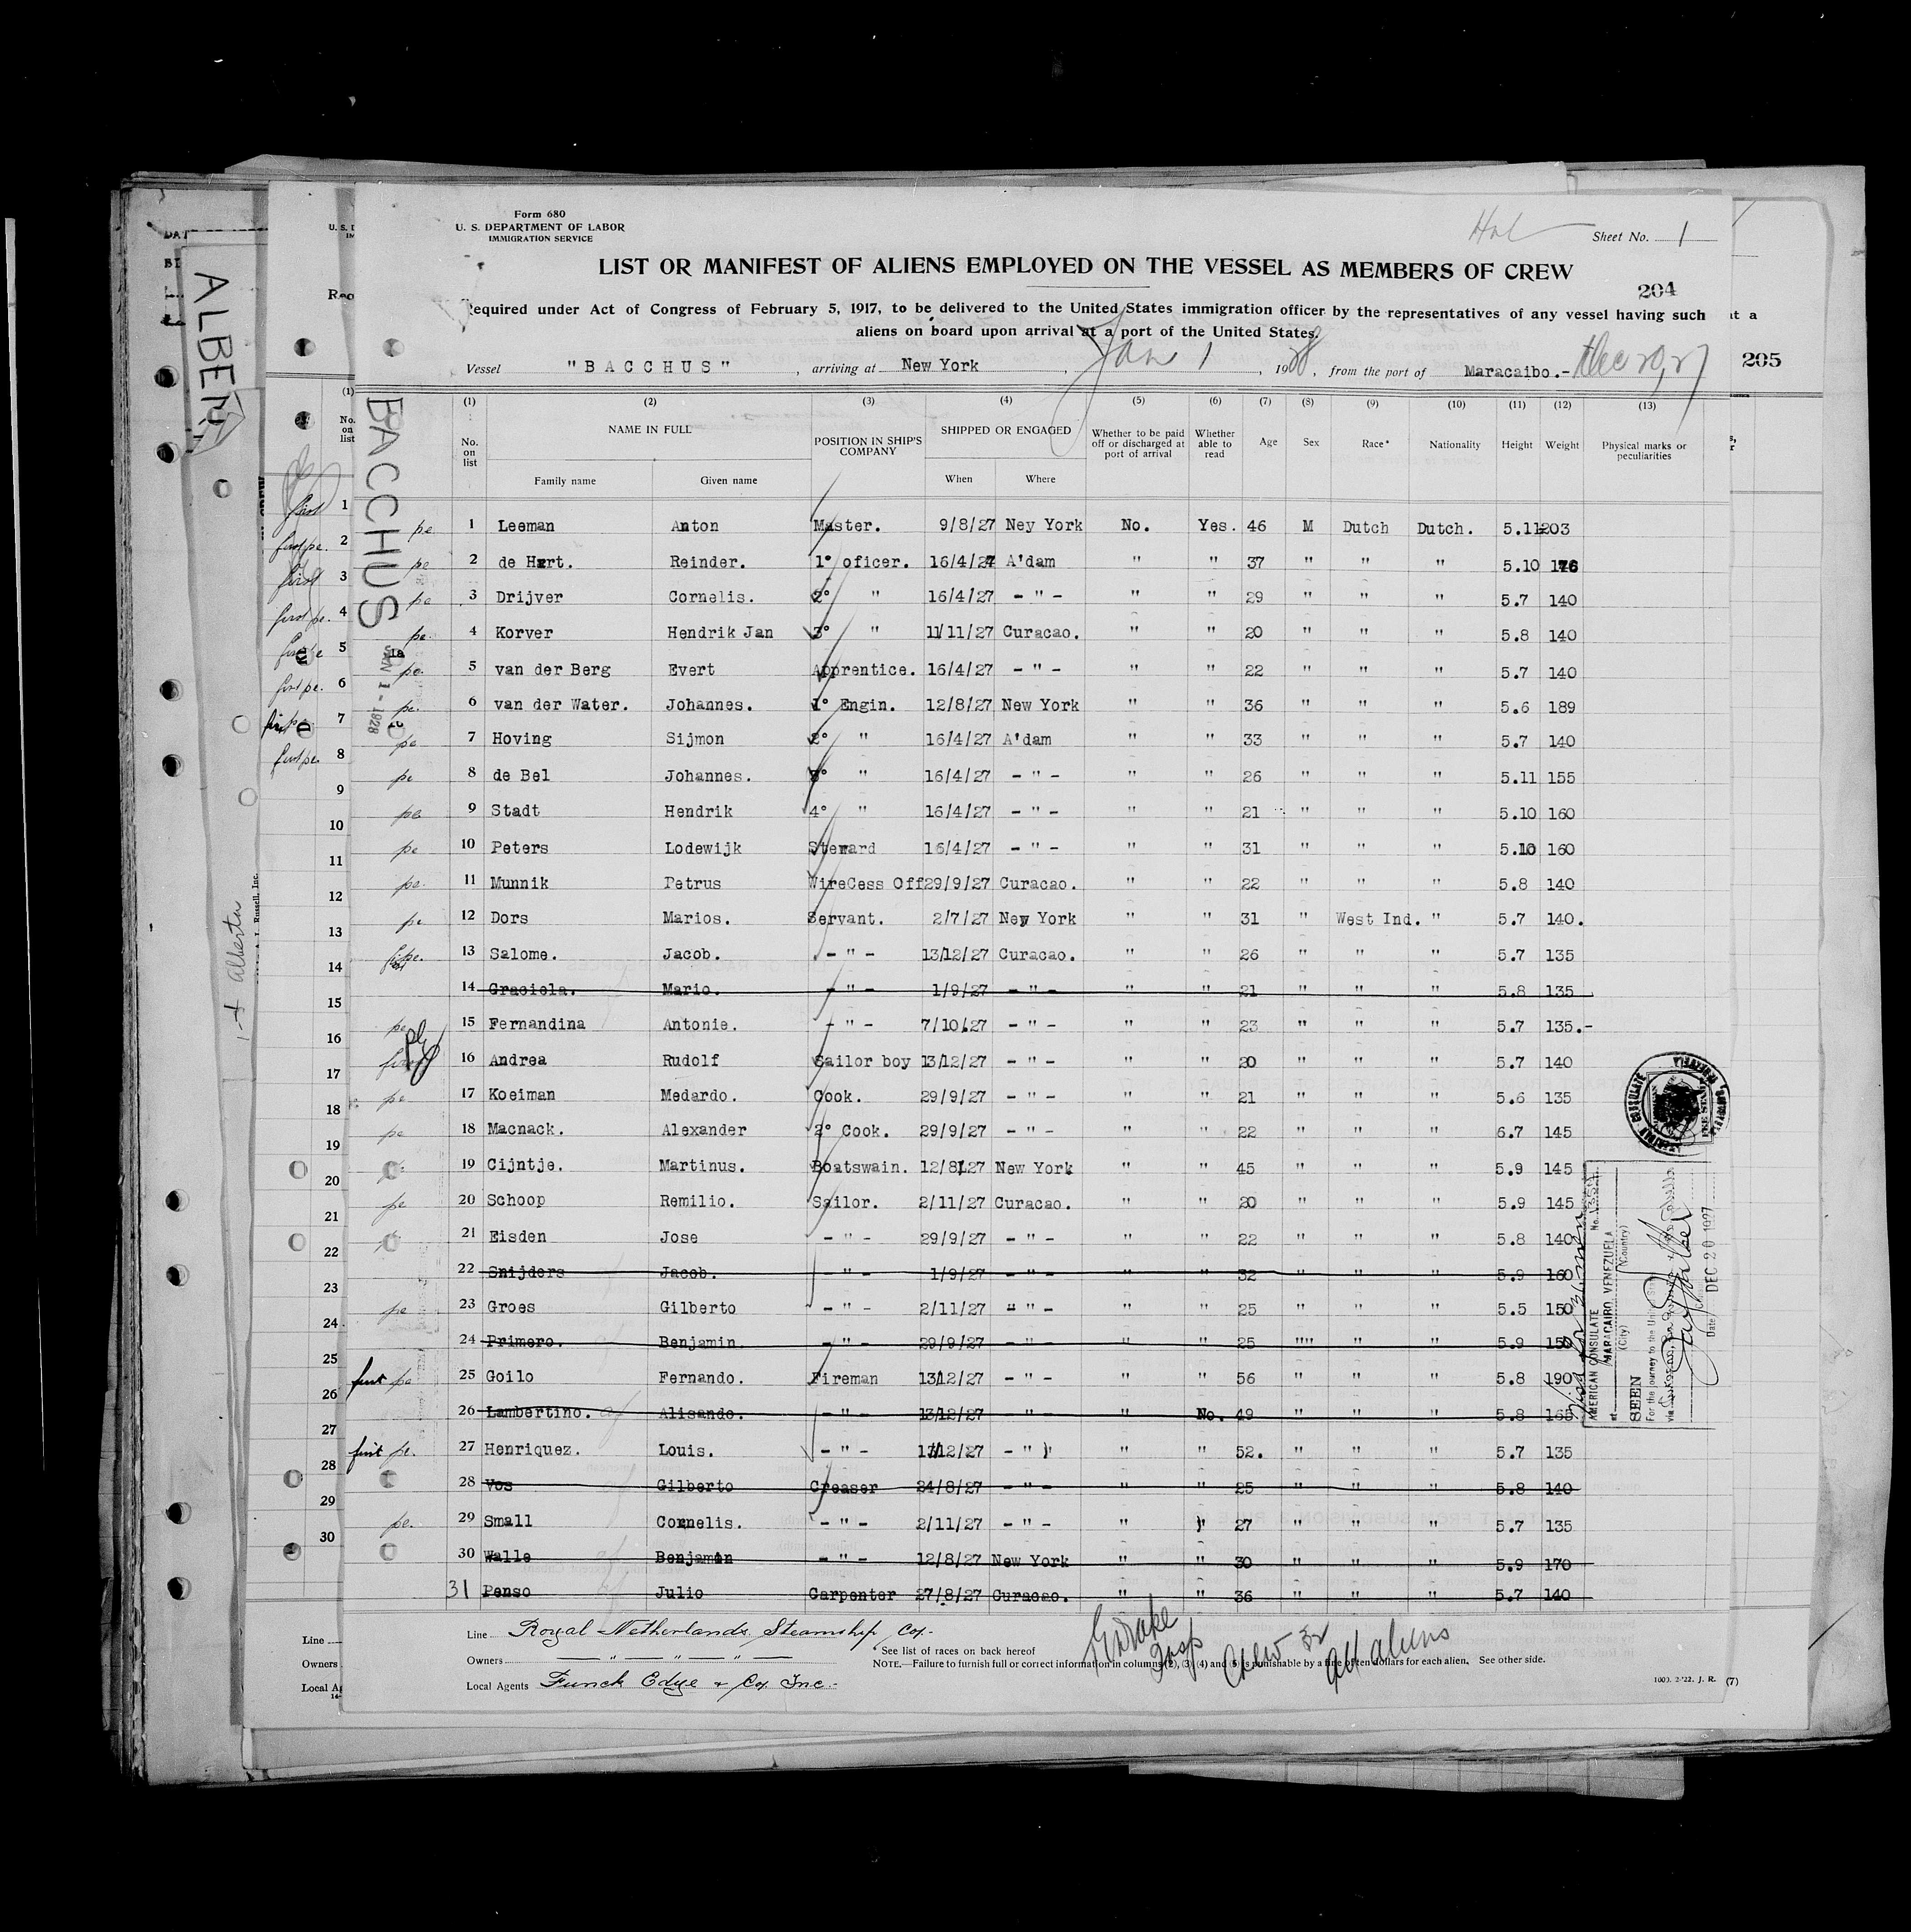 Form 680
U. S. DEPARTMENT OF LABOR
IMMIGRATION SERVICE
Sheet No. 1
LIST OR MANIFEST OF ALIENS EMPLOYED ON THE VESSEL AS MEMBERS OF CREW
204
Required under Act of Congress of February 5, 1917, to be delivered to the United States immigration officer by the representatives of any vessel having such
aliens on board upon arrival at a port of the United States.
Vessel "BACCHUS", arriving at New York, Jan 1, 1928, from the port of Maracaibo.- Dec 20, 27
205
ALBER
BACCHUS
JAN 1 - 1928
(1) (2) (3) (4) (5) (6) (7) (8) (9) (10) (11) (12) (13)
No. on list NAME IN FULL POSITION IN SHIP'S COMPANY SHIPPED OR ENGAGED Whether to be paid off or discharged at port of arrival Whether able to read Age Sex Race* Nationality Height Weight Physical marks or peculiarities
Family name Given name When Where
pe 1 Leeman Anton Master. 9/8/27 Ney York No. Yes. 46 M Dutch Dutch. 5.11 203
pe 2 de Hart. Reinder. 1° oficer. 16/4/27 A'dam " " 37 " " " 5.10 176
pe 3 Drijver Cornelis. 2° " 16/4/27 - " - " " 29 " " " 5.7 140
pe. 4 Korver Hendrik Jan 3° " 11/11/27 Curacao. " " 20 " " " 5.8 140
pe. 5 van der Berg Evert Apprentice. 16/4/27 - " - " " 22 " " " 5.7 140
pe. 6 van der Water. Johannes. 1° Engin. 12/8/27 New York " " 36 " " " 5.6 189
pe 7 Hoving Sijmon 2° " 16/4/27 A'dam " " 33 " " " 5.7 140
pe 8 de Bel Johannes. 3° " 16/4/27 - " - " " 26 " " " 5.11 155
pe 9 Stadt Hendrik 4° " 16/4/27 - " - " " 21 " " " 5.10 160
pe 10 Peters Lodewijk Steward 16/4/27 - " - " " 31 " " " 5.10 160
pe. 11 Munnik Petrus WireCess Off 29/9/27 Curacao. " " 22 " " " 5.8 140
pe 12 Dors Marios. Servant. 2/7/27 New York " " 31 " West Ind. " 5.7 140.
pe. 13 Salome. Jacob. - " - 13/12/27 Curacao. " " 26 " " " 5.7 135
14 Graciela. Mario. - " - 1/9/27 - " - " " 21 " " " 5.8 135
pe 15 Fernandina Antonie. - " - 7/10.27 - " - " " 23 " " " 5.7 135.-
first 16 Andrea Rudolf Sailor boy 13/12/27 - " - " " 20 " " " 5.7 140
pe 17 Koeiman Medardo. Cook. 29/9/27 - " - " " 21 " " " 5.6 135
pe 18 Macnack. Alexander 2° Cook. 29/9/27 - " - " " 22 " " " 6.7 145
19 Cijntje. Martinus. Boatswain. 12/8/27 New York " " 45 " " " 5.9 145
pe 20 Schoop Remilio. Sailor. 2/11/27 Curacao. " " 20 " " " 5.9 145
21 Eisden Jose - " - 29/9/27 - " - " " 22 " " " 5.8 140
22 Snijders Jacob. - " - 1/9/27 - " - " " 32 " " " 5.9 160
pe 23 Groes Gilberto - " - 2/11/27 " " - " " 25 " " " 5.5 150
24 Primero. Benjamin. - " - 29/9/27 - " - " " 25 "" " " 5.9 150
first pe 25 Goilo Fernando. Fireman 13/12/27 - " - " " 56 " " " 5.8 190
26 Lambertino. Alisando. - " - 13/12/27 - " - " No. 49 " " " 5.8 165
first pe. 27 Henriquez. Louis. - " - 13/12/27 - " " " " 52. " " " 5.7 135
28 Vos Gilberto Greaser 24/8/27 - " - " " 25 " " " 5.8 140
pe. 29 Small Cornelis. - " - 2/11/27 - " - " " 27 " " " 5.7 135
30 Walle Benjamin - " - 12/8/27 New York " " 30 " " " 5.9 170
31 Penso Julio Carpenter 27/8/27 Curacao. " " 36 " " " 5.7 140
AMERICAN CONSULATE
at MARACAIBO VENEZUELA
(City) (Country)
SEEN
For the journey to the United States
via
Date DEC 20 1927
Line Royal Netherlands Steamship Co.-
Owners — " — " — " —
Local Agents Funch Edye & Co. Inc.-
See list of races on back hereof
NOTE.—Failure to furnish full or correct information in columns (2), (3), (4) and (5) is punishable by a fine of ten dollars for each alien. See other side.
Drake
Insp
Crew 32
All aliens
Alberta
Line
Owners
Local Ag